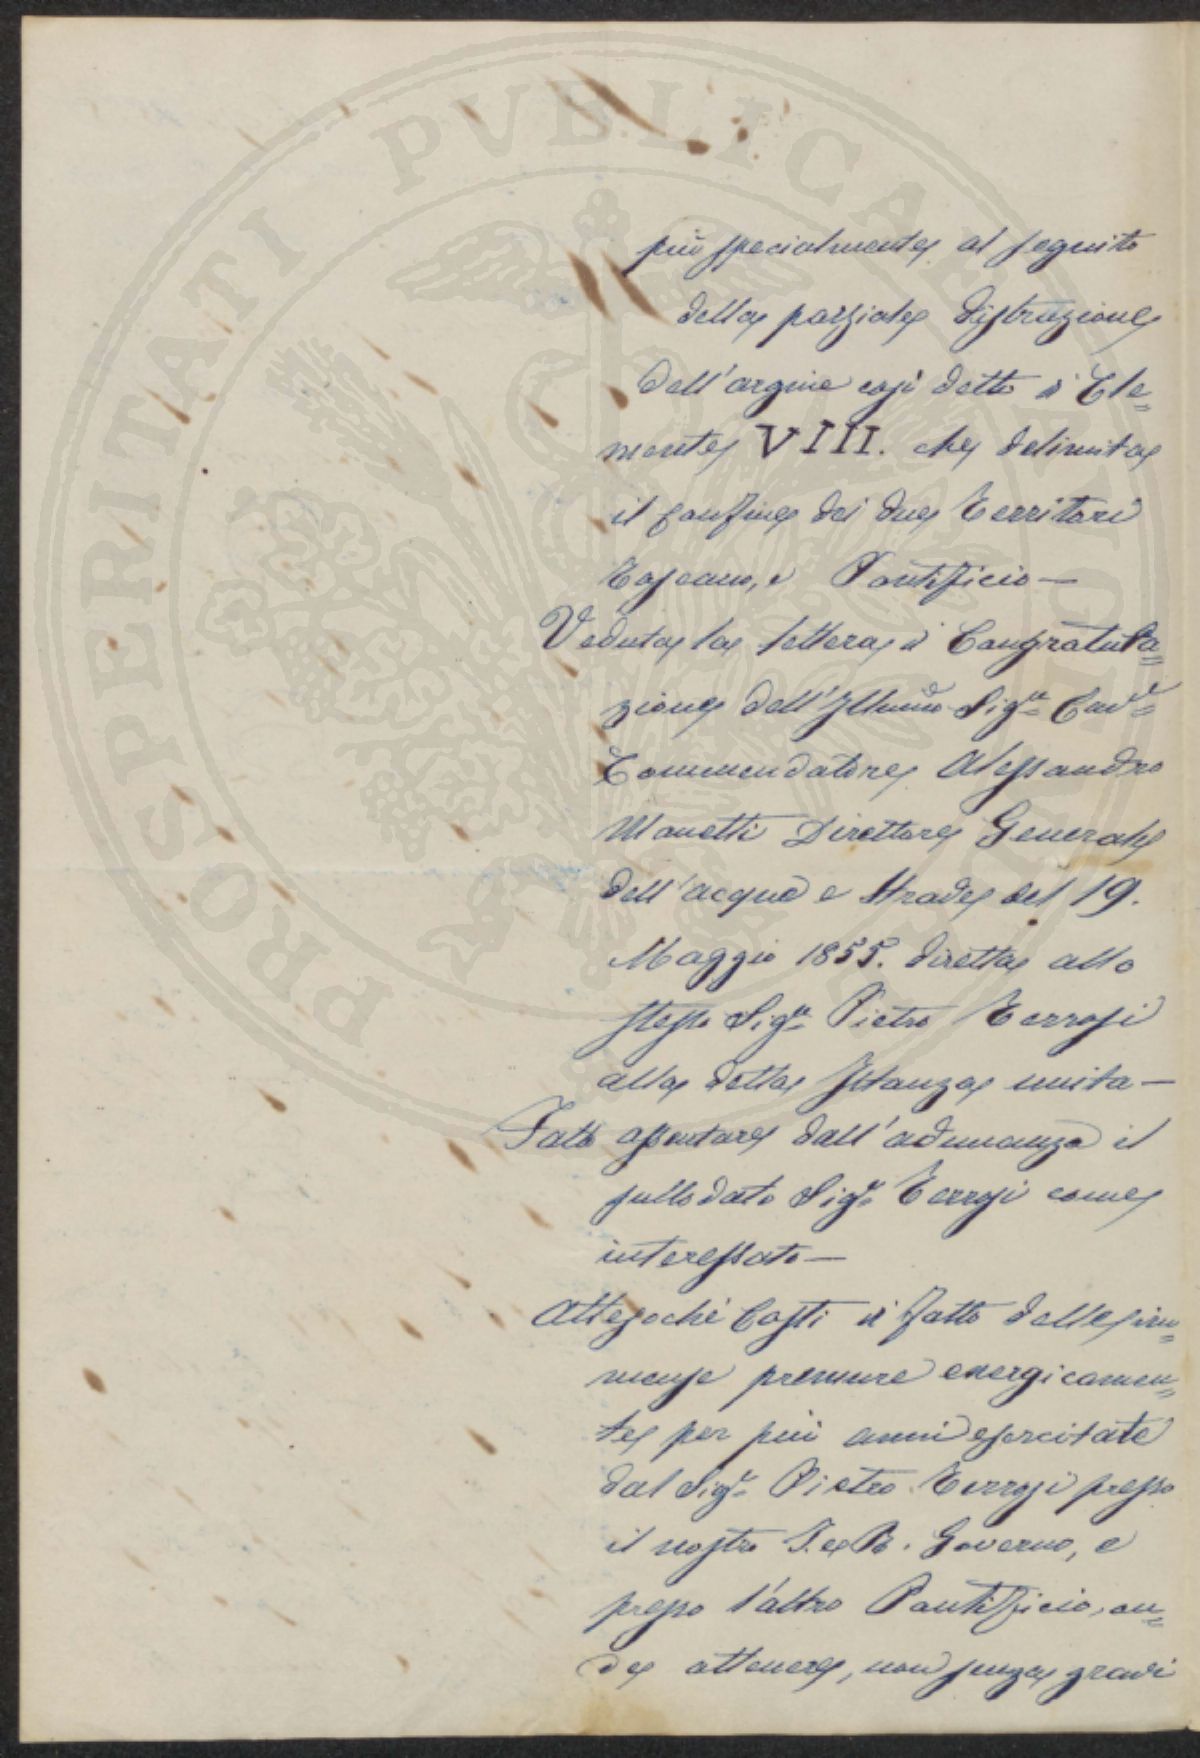 PROSPERITATI PUBLICAE AUGENDAE
più specialmente al seguito
della parziale distruzione
dell'argine così detto di Cle=
mente VIII. che delimita
il confine dei due Territori
Toscano, e Pontificio —
Veduta la lettera di Congratula=
zione dell'Illmo Sigre Cave
Commendatore Alessandro
Manetti Direttore Generale
dell'acque e Strade del 19.
Maggio 1855. diretta allo
stesso Sigre Pietro Terrosi
alla detta Istanza unita —
Fatto assentare dall'adunanza il
sullodato Sigr Terrosi come
interessato —
Attesoché Costi di fatto delle im=
mense premure energicamen=
te per più anni esercitate
dal Sigr Pietro Terrosi presso
il nostro I. e R. Governo, e
presso l'altro Pontificio, on=
de ottenere, non senza gravi